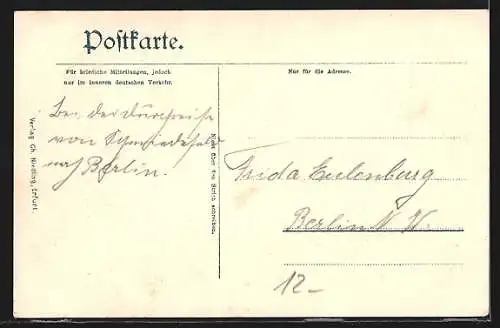 Postkarte.
Für briefliche Mitteilungen, jedoch
nur im inneren deutschen Verkehr.
Nur für die Adresse.
Bei der Durchreise
von Schmiedefeld
nach Berlin.
Verlag Ch. Niedling, Erfurt.
Nicht über den Strich schreiben.
Frida Eulenburg
Berlin N. W.
12–